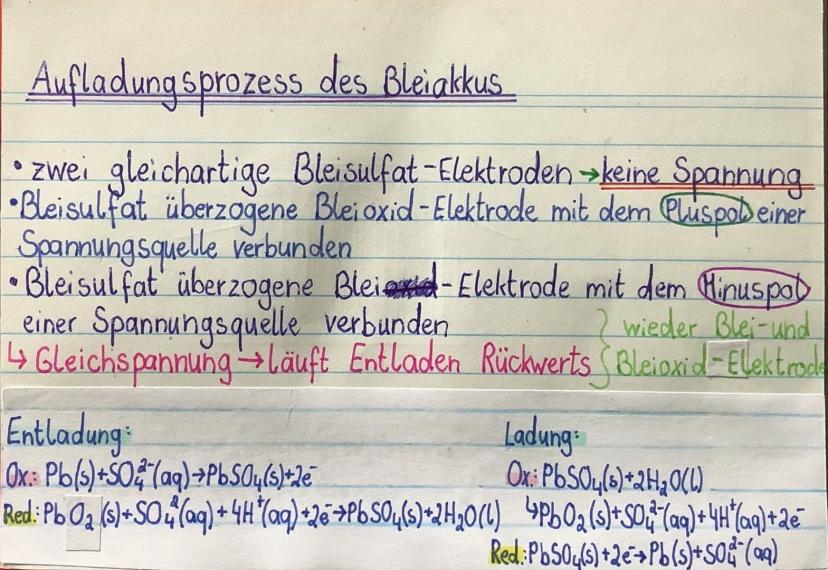 Aufladungsprozess des Bleiakkus
• zwei gleichartige Bleisulfat-Elektroden → keine Spannung
• Bleisulfat überzogene Bleioxid-Elektrode mit dem Pluspol einer
Spannungsquelle verbunden
• Bleisulfat überzogene Blei-Elektrode mit dem Minuspol
einer Spannungsquelle verbunden
↳ Gleichspannung → läuft Entladen Rückwerts
} wieder Blei-und
Bleioxid-Elektrode
Entladung:
Ox.: Pb(s)+SO₄²⁻(aq)→PbSO₄(s)+2e⁻
Red.: PbO₂(s)+SO₄²(aq)+4H⁺(aq)+2e⁻→PbSO₄(s)+2H₂O(l)
Ladung:
Ox.: PbSO₄(s)+2H₂O(l)
↳PbO₂(s)+SO₄²⁻(aq)+4H⁺(aq)+2e⁻
Red.: PbSO₄(s)+2e⁻→Pb(s)+SO₄²⁻(aq)